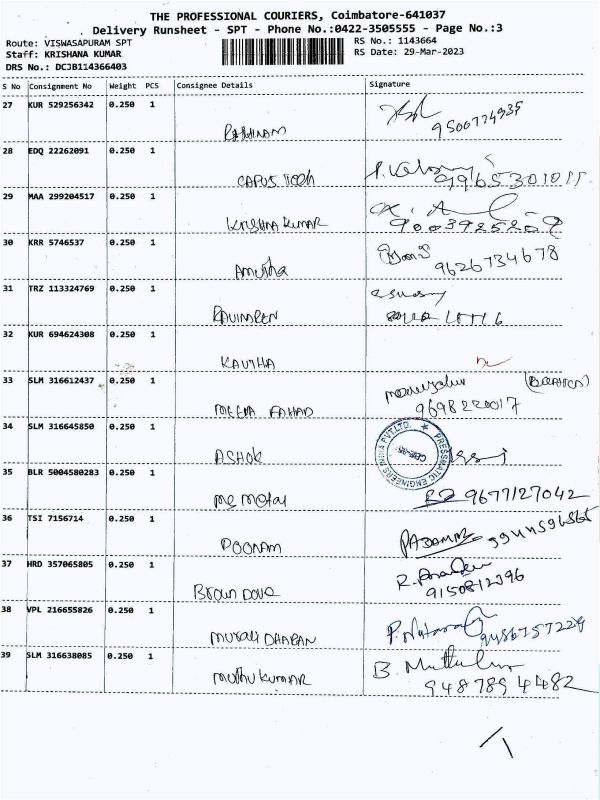 THE PROFESSIONAL COURIERS, Coimbatore-641037
Delivery Runsheet - SPT - Phone No.:0422-3505555 - Page No.:3
Route: VISWASAPURAM SPT
RS No.: 1143664
Staff: KRISHANA KUMAR
RS Date: 29-Mar-2023
DRS No.: DCJB114366403
S No Consignment No Weight PCS Consignee Details Signature
27 KUR 529256342 0.250 1
28 EDQ 22262091 0.250 1
29 MAA 299204517 0.250 1
KRISHNA KUMAR 9003925209
30 KRR 5746537 0.250 1
Amutha 9626734678
31 TRZ 113324769 0.250 1
32 KUR 694624308 0.250 1
KAVITHA
33 SLM 316612437 0.250 1
MEERA FAHAD 9698220017
34 SLM 316645850 0.250 1
ASHOK
PRESSMATIC ENGINEERS INDIA PVT.LTD.
35 BLR 5004580283 0.250 1
9677127042
36 TSI 7156714 0.250 1
POONAM
37 HRD 357065805 0.250 1
Brown Dove 9150812396
38 VPL 216655826 0.250 1
MURALI DHARAN P.Nataraj 9486757229
39 SLM 316638085 0.250 1
MUTHU KUMAR B. Muthukumar
9487894482